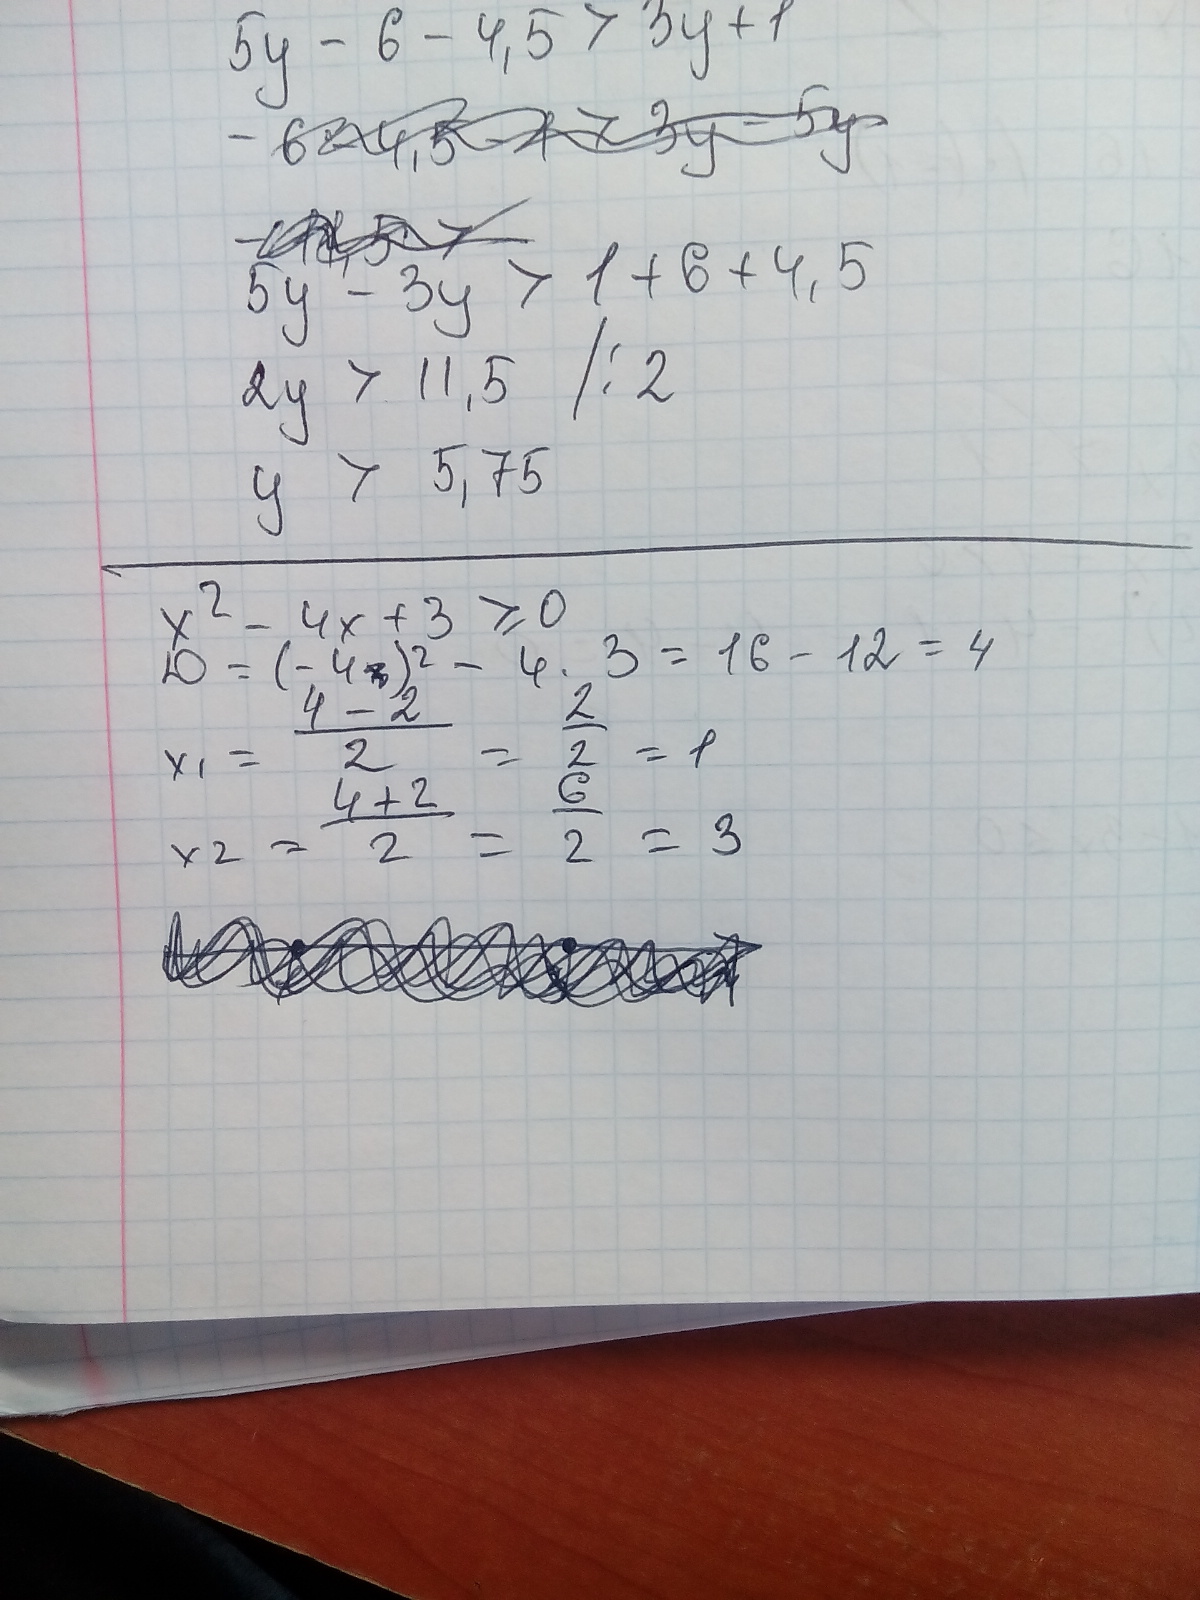 5y - 6 - 4,5 > 3y + 1
- 6 - 4,5 - 1 > 3y - 5y
5y - 3y > 1 + 6 + 4,5
2y > 11,5 /:2
y > 5,75
x² - 4x + 3 ⩾ 0
D = (-4)² - 4 · 3 = 16 - 12 = 4
x₁ = (4 - 2)/2 = 2/2 = 1
x2 = (4 + 2)/2 = 6/2 = 3